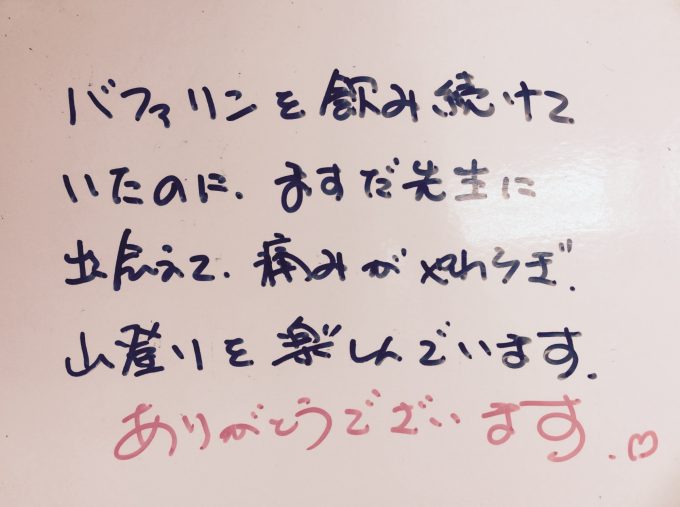 バファリンを飲み続けて
いたのに、ますだ先生に
出会えて、痛みがやわらぎ、
山登りを楽しんでいます。
ありがとうでございます。♡